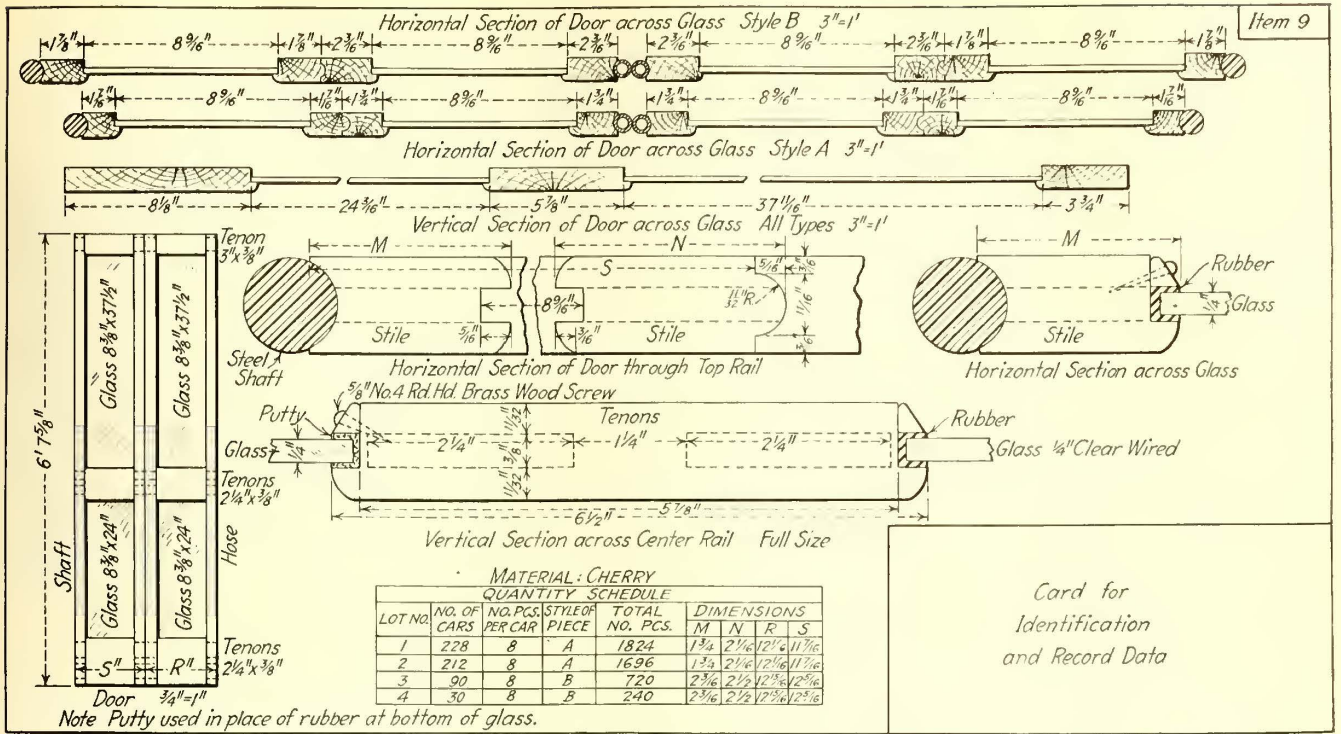 Item 9
Horizontal Section of Door across Glass Style B 3"=1'
1 7/8" 8 9/16" 1 7/8" 2 3/16" 8 9/16" 2 3/16" 2 3/16" 8 9/16" 2 3/16" 1 7/8" 8 9/16" 1 7/8"
1 7/16" 8 9/16" 1 7/16" 1 3/4" 8 9/16" 1 3/4" 1 3/4" 8 9/16" 1 3/4" 1 7/16" 8 9/16" 1 7/16"
Horizontal Section of Door across Glass Style A 3"=1'
8 1/8" 24 3/16" 5 7/8" 37 11/16" 3 3/4"
Vertical Section of Door across Glass All Types 3"=1'
6' 7 5/8"
Tenon
3"x3/8"
Glass 8 3/8"x37 1/2"
Glass 8 3/8"x37 1/2"
Tenons
2 1/4"x3/8"
Shaft
Glass 8 3/8"x24"
Glass 8 3/8"x24"
Hose
Tenons
2 1/4"x3/8"
S" R"
Door 3/4"=1"
Note Putty used in place of rubber at bottom of glass.
M N
S
5/16" 3/16"
11/32"R 11/16"
8 9/16"
Stile 5/16" 3/16" Stile 3/16"
Steel
Shaft
Horizontal Section of Door through Top Rail
M
Rubber
1/4" Glass
Stile
Horizontal Section across Glass
5/8" No.4 Rd.Hd. Brass Wood Screw
Putty Tenons Rubber
11/32"
Glass 1/4" 2 1/4" 3/8" 1 1/4" 2 1/4" Glass 1/4" Clear Wired
11/32"
5 7/8"
6 1/2"
Vertical Section across Center Rail Full Size
MATERIAL: CHERRY
QUANTITY SCHEDULE
LOT NO. NO. OF CARS NO. PCS. PER CAR STYLE OF PIECE TOTAL NO. PCS. DIMENSIONS
M N R S
1 228 8 A 1824 1 3/4 2 1/16 12 1/16 11 7/16
2 212 8 A 1696 1 3/4 2 1/16 12 1/16 11 7/16
3 90 8 B 720 2 3/16 2 1/2 12 15/16 12 5/16
4 30 8 B 240 2 3/16 2 1/2 12 15/16 12 5/16
Card for
Identification
and Record Data